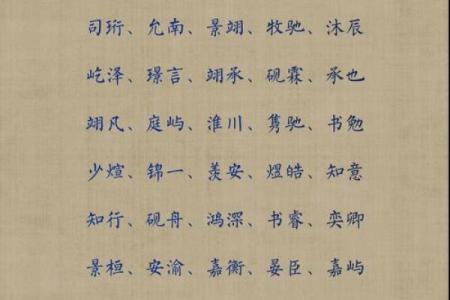 司珩、允南、景翊、牧驰、沐辰
屹泽、璟言、翊承、砚霖、承也
翊凡、庭屿、淮川、隽驰、书勉
少煊、锦一、羡安、煜皓、知意
知行、砚舟、鸿深、书睿、奕卿
景桓、安渝、嘉衡、晏臣、嘉屿